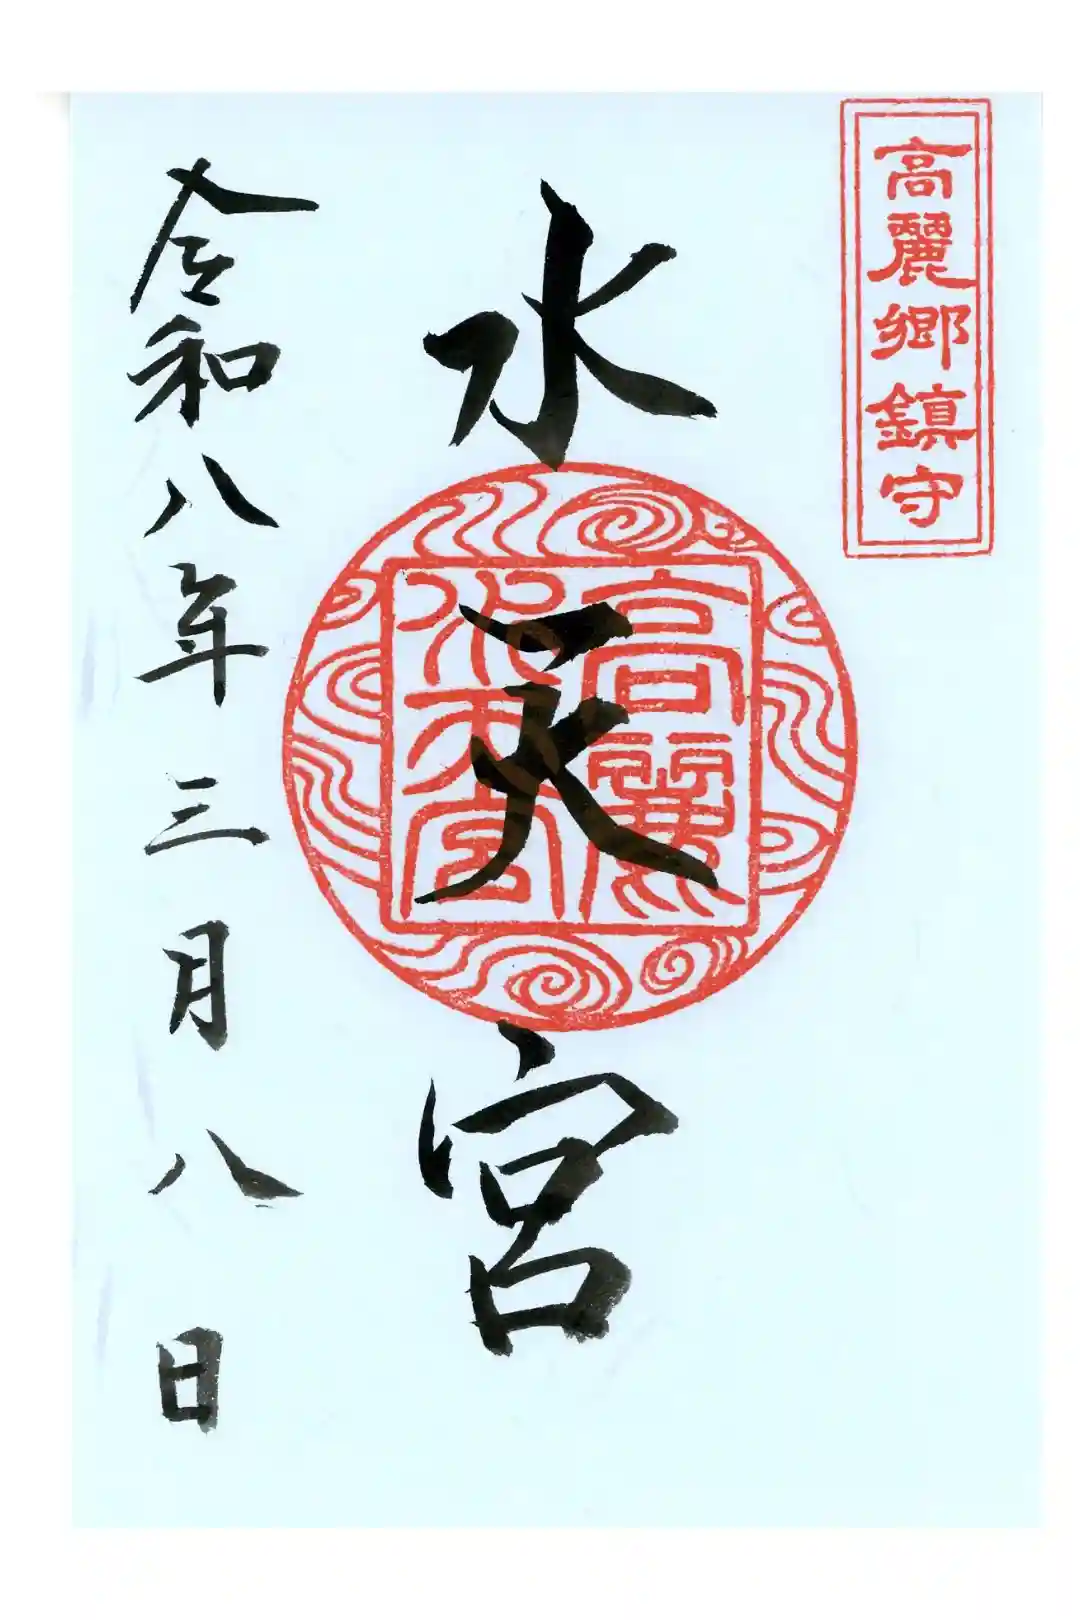 高麗郷鎮守
水天宮
高麗
水天宮
令和八年三月八日